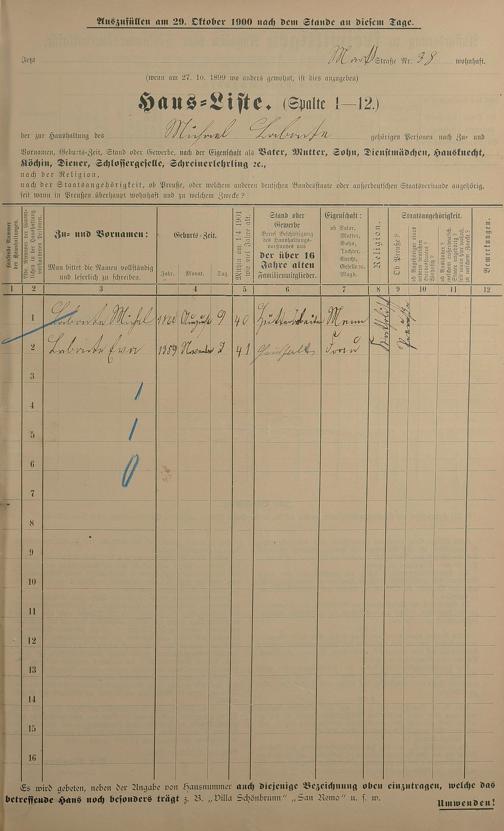 Auszufüllen am 29. Oktober 1900 nach dem Stande an diesem Tage.
Jetzt Straße Nr. 38 wohnhaft.
(wenn am 27. 10. 1899 wo anders gewohnt, ist dies anzugeben)
Haus-Liste. (Spalte 1—12.)
der zur Haushaltung des Michael Labonte gehörigen Personen nach Zu- und
Vornamen, Geburts-Zeit, Stand oder Gewerbe, nach der Eigenschaft als Vater, Mutter, Sohn, Dienstmädchen, Hausknecht,
Köchin, Diener, Schlossergeselle, Schreinerlehrling ꝛc.,
nach der Religion,
nach der Staatsangehörigkeit, ob Preuße, oder welchem anderen deutschen Bundesstaate oder außerdeutschen Staatsverbande angehörig,
seit wann in Preußen überhaupt wohnhaft und zu welchem Zwecke?
Zu- und Vornamen:
Man bittet die Namen vollständig
und leserlich zu schreiben.
Geburts-Zeit.
Jahr. Monat. Tag.
Mithin am 1.4. 1901
wie viel Jahre alt.
Stand oder
Gewerbe
Beruf, Beschäftigung
des Haushaltungs-
vorstandes und
der über 16
Jahre alten
Familienmitglieder.
Eigenschaft:
ob Vater,
Mutter,
Sohn,
Tochter,
Knecht,
Geselle ꝛc.
Magd.
Religion.
Ob Preuße?
Staatsangehörigkeit.
Bemerkungen.
1 2 3 4 5 6 7 8 9 10 11 12
1 Labonte Michel August 9 40 Hüttenarbeiter Mann
2 Labonte Eva 1859 November 2 41 Haushalt Frau
3
4 1
5 1
6 0
7
8
9
10
11
12
13
14
15
16
Es wird gebeten, neben der Angabe von Hausnummer auch diejenige Bezeichnung oben einzutragen, welche das
betreffende Haus noch besonders trägt z. B. „Villa Schönbrunn" „San Remo" u. s. w.
Umwenden!